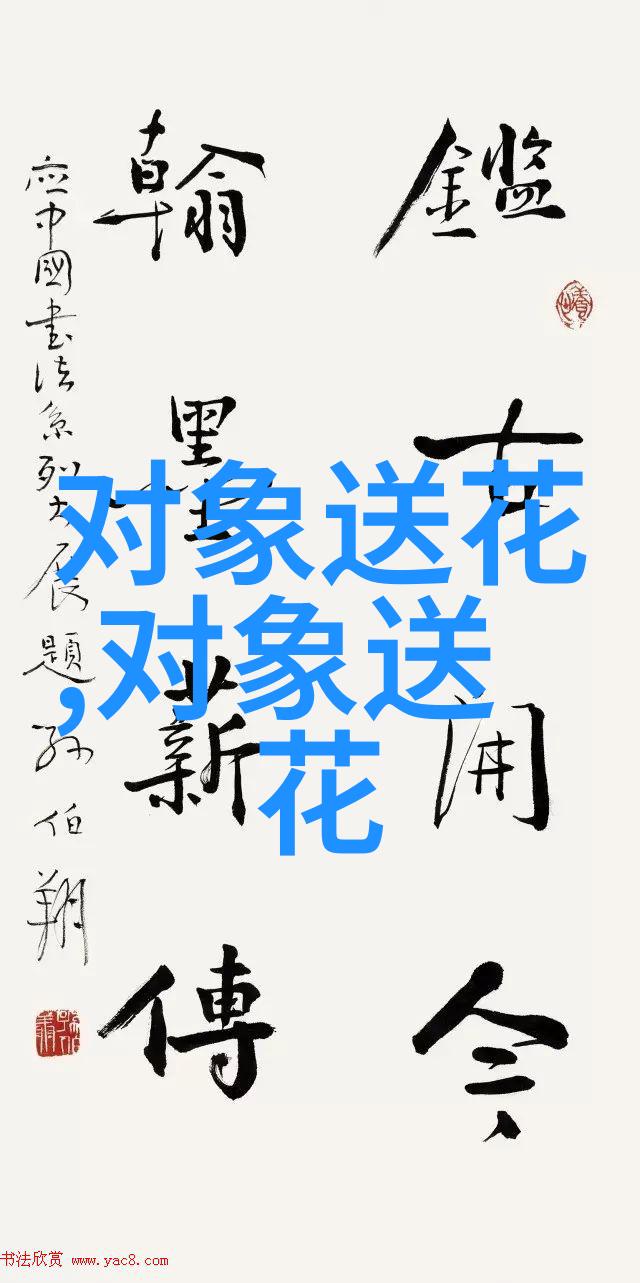 鑑古開今
翰墨薪傳
应中國書法系列大展題 孙伯翔
对象送花
,对象送
花
书法欣赏 www.yac8.com